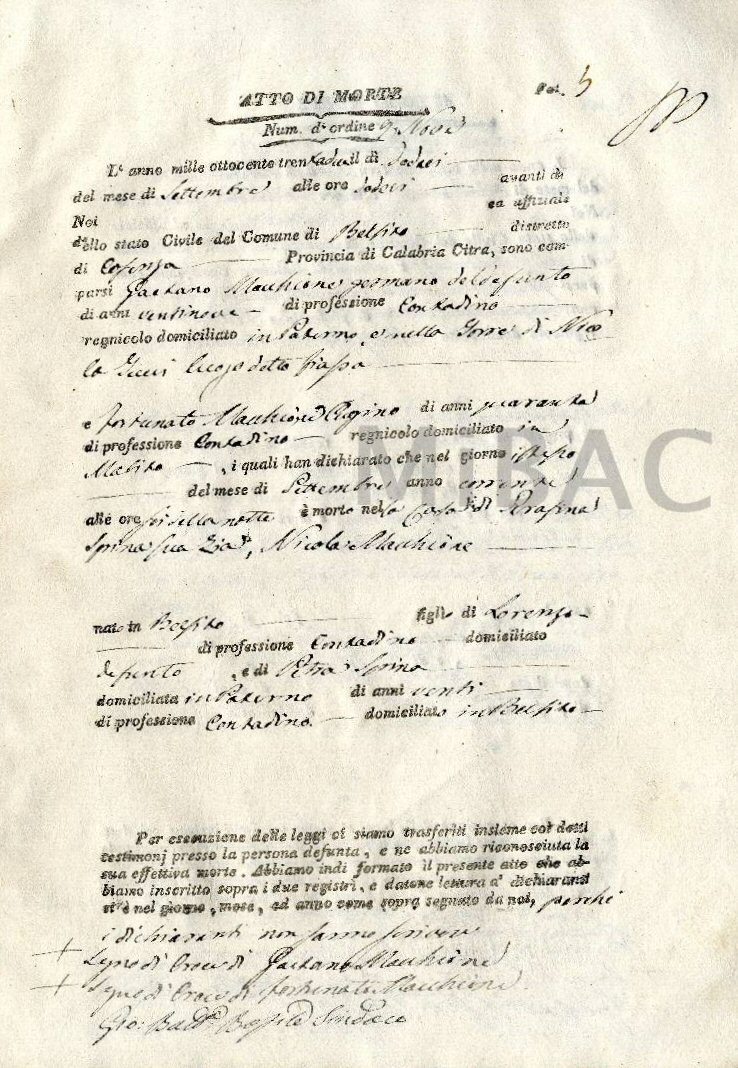 ATTO DI MORTE
Fol. 5
Num. d'ordine 9. Nove
L'anno mille ottocento trentadue il dì dodeci
del mese di Settembre alle ore dodeci avanti di
Noi ed uffiziale
dello stato Civile del Comune di Belsito distretto
di Cosenza Provincia di Calabria Citra, sono com-
parsi Gaetano Macchione germano del defunto
di anni ventinove di professione Contadino
regnicolo domiciliato in Paterno, e nella Torre di Nico
la luogo detto
e Fortunato Macchione Cugino di anni quaranta
di professione Contadino regnicolo domiciliato in
Malito, i quali han dichiarato che nel giorno istesso
del mese di Settembre anno corrente
alle ore sei della notte è morto nella Casa di Serafina
Spina sua Zia, Nicola Macchione
nato in Belsito figlio di Lorenzo
di professione Contadino domiciliato
defunto, e di Petra Spina
domiciliata in Paterno di anni venti
di professione Contadino domiciliato in Belsito
Per esecuzione delle leggi ci siamo trasferiti insieme coi detti
testimonj presso la persona defunta, e ne abbiamo riconosciuta la
sua effettiva morte. Abbiamo indi formato il presente atto che ab-
biamo inscritto sopra i due registri, e datone lettura a' dichiaranti
si è nel giorno, mese, ed anno come sopra segnato da noi, perché
i dichiaranti non sanno scrivere
+ Segno di Croce di Gaetano Macchione
+ Segno di Croce di Fortunato Macchione
Gio: Batta Sindaco
MiBAC